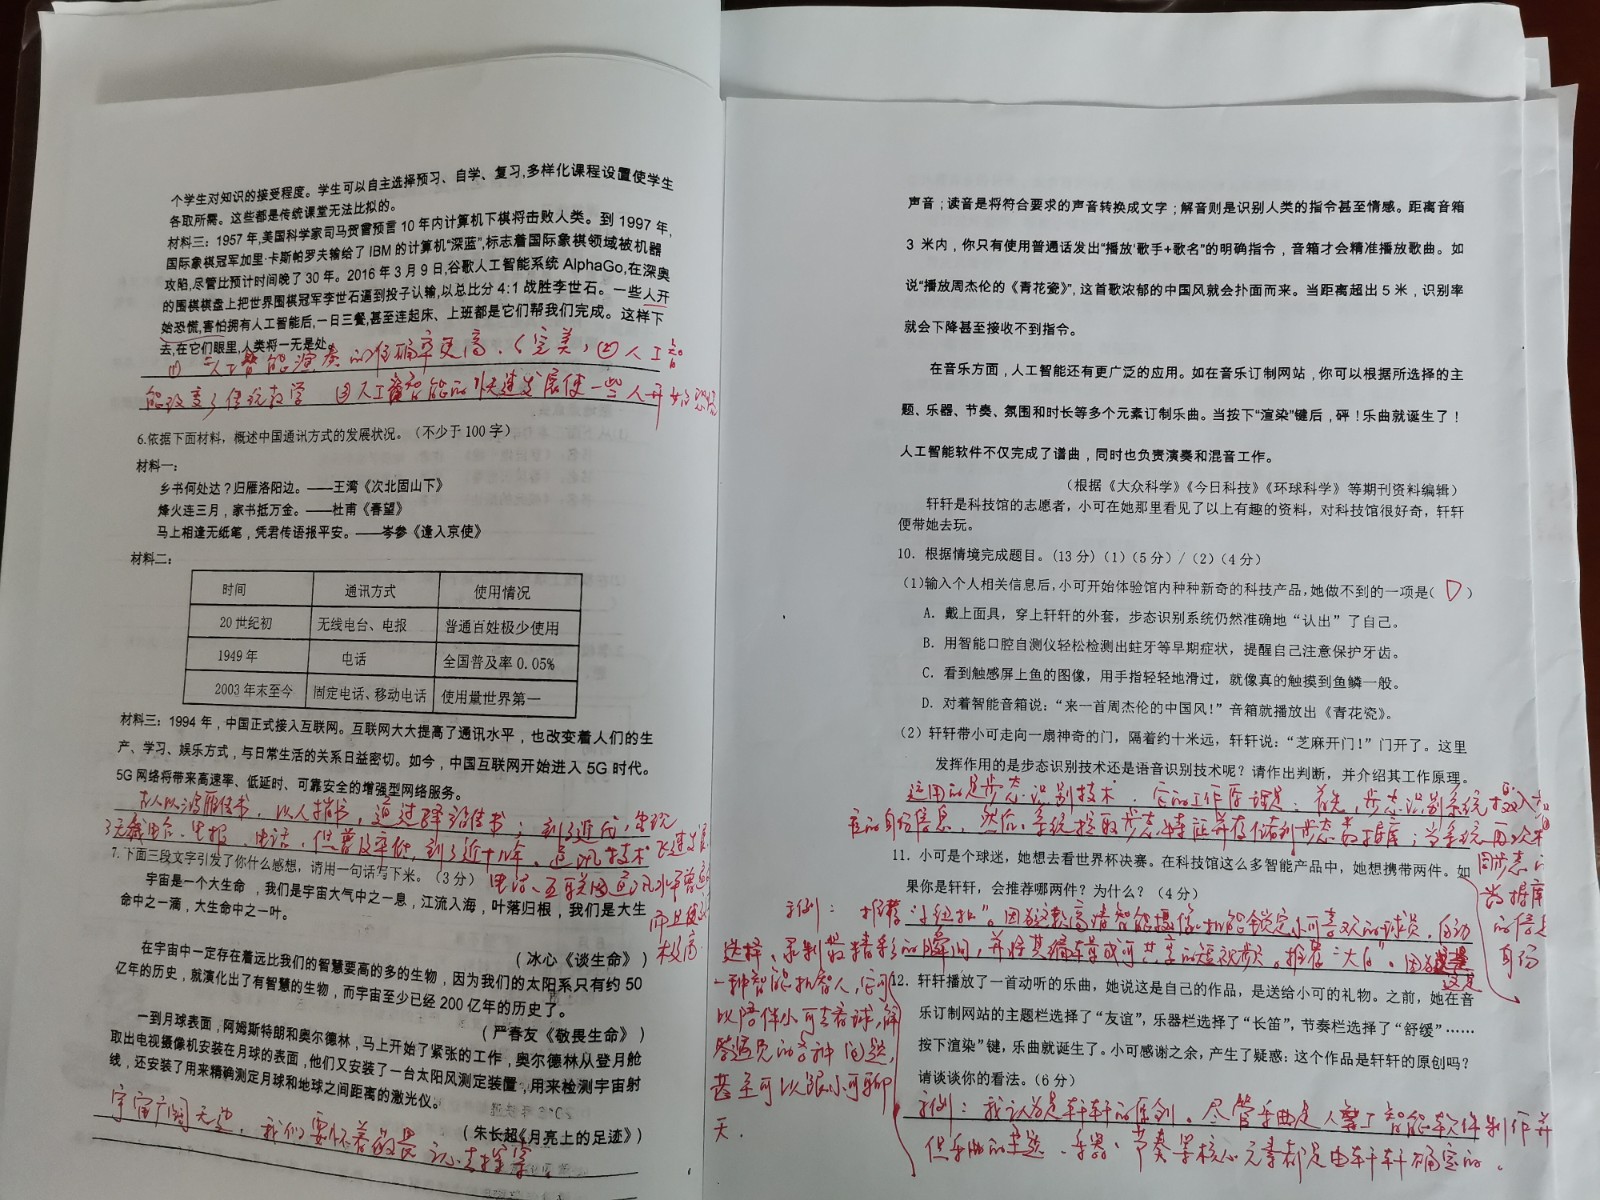 个学生对知识的接受程度。学生可以自主选择预习、自学、复习,多样化课程设置使学生
各取所需。这些都是传统课堂无法比拟的。
材料三：1957年,美国科学家司马贺曾预言10年内计算机下棋将击败人类。到1997年,
国际象棋冠军加里·卡斯帕罗夫输给了IBM的计算机“深蓝”,标志着国际象棋领域被机器
攻陷,尽管比预计时间晚了30年。2016年3月9日,谷歌人工智能系统AlphaGo,在深奥
的围棋棋盘上把世界围棋冠军李世石逼到投子认输,以总比分4:1战胜李世石。一些人开
始恐慌,害怕拥有人工智能后,一日三餐,甚至连起床、上班都是它们帮我们完成。这样下
去,在它们眼里,人类将一无是处。
① 人工智能演奏的准确率更高、(完美) ② 人工智
能改变了传统教学 ③人工智能的快速发展使一些人开始恐慌
6.依据下面材料，概述中国通讯方式的发展状况。（不少于100字）
材料一：
乡书何处达？归雁洛阳边。——王湾《次北固山下》
烽火连三月，家书抵万金。——杜甫《春望》
马上相逢无纸笔，凭君传语报平安。——岑参《逢入京使》
材料二：
时间 通讯方式 使用情况
20世纪初 无线电台、电报 普通百姓极少使用
1949年 电话 全国普及率0.05%
2003年末至今 固定电话、移动电话 使用量世界第一
材料三：1994年，中国正式接入互联网。互联网大大提高了通讯水平，也改变着人们的生
产、学习、娱乐方式，与日常生活的关系日益密切。如今，中国互联网开始进入5G时代。
5G网络将带来高速率、低延时、可靠安全的增强型网络服务。
古人以鸿雁传书，以人捎书，通过驿站传书；到了近代，出现
了无线电台、电报、电话，但普及率低，到了近十几年，通讯技术飞速发展
电话、互联网通讯水平普遍
而且使
极高
7.下面三段文字引发了你什么感想，请用一句话写下来。（3分）
宇宙是一个大生命，我们是宇宙大气中之一息，江流入海，叶落归根，我们是大生
命中之一滴，大生命中之一叶。
（冰心《谈生命》）
在宇宙中一定存在着远比我们的智慧要高的多的生物，因为我们的太阳系只有约50
亿年的历史，就演化出了有智慧的生物，而宇宙至少已经200亿年的历史了。
（严春友《敬畏生命》）
一到月球表面，阿姆斯特朗和奥尔德林，马上开始了紧张的工作，奥尔德林从登月舱
取出电视摄像机安装在月球的表面，他们又安装了一台太阳风测定装置，用来检测宇宙射
线，还安装了用来精确测定月球和地球之间距离的激光仪。
（朱长超《月亮上的足迹》）
宇宙广阔无边，我们要怀着敬畏之心去探索。
声音；读音是将符合要求的声音转换成文字；解音则是识别人类的指令甚至情感。距离音箱
3 米内，你只有使用普通话发出“播放‘歌手+歌名”的明确指令，音箱才会精准播放歌曲。如
说“播放周杰伦的《青花瓷》”，这首歌浓郁的中国风就会扑面而来。当距离超出5米，识别率
就会下降甚至接收不到指令。
在音乐方面，人工智能还有更广泛的应用。如在音乐订制网站，你可以根据所选择的主
题、乐器、节奏、氛围和时长等多个元素订制乐曲。当按下“渲染”键后，砰！乐曲就诞生了！
人工智能软件不仅完成了谱曲，同时也负责演奏和混音工作。
（根据《大众科学》《今日科技》《环球科学》等期刊资料编辑）
轩轩是科技馆的志愿者，小可在她那里看见了以上有趣的资料，对科技馆很好奇，轩轩
便带她去玩。
10．根据情境完成题目。(13分)（1）(5分) /（2）(4分)
(1)输入个人相关信息后，小可开始体验馆内种种新奇的科技产品,她做不到的一项是( D )
A．戴上面具，穿上轩轩的外套，步态识别系统仍然准确地“认出”了自己。
B．用智能口腔自测仪轻松检测出蛀牙等早期症状，提醒自己注意保护牙齿。
C．看到触感屏上鱼的图像，用手指轻轻地滑过，就像真的触摸到鱼鳞一般。
D．对着智能音箱说：“来一首周杰伦的中国风！”音箱就播放出《青花瓷》。
（2）轩轩带小可走向一扇神奇的门，隔着约十米远，轩轩说：“芝麻开门！”门开了。这里
发挥作用的是步态识别技术还是语音识别技术呢？请作出判断，并介绍其工作原理。
运用的是步态识别技术，它的工作原理是：首先，步态识别系统摄入
的身份信息，然后，系统提取步态特征并存储到步态数据库；当系统再次
步态
数据库
的信息
身份
11．小可是个球迷，她想去看世界杯决赛。在科技馆这么多智能产品中，她想携带两件。如
果你是轩轩，会推荐哪两件？为什么？（4分）
示例：推荐“小纽扣”。因为这款高清智能摄像机能锁定小可喜欢的球员，自动
选择、录制最精彩的瞬间，并将其编辑成可共享的短视频。推荐“大白”。因为这是
一种智能机器人，它可
以陪伴小可去看球，解
答遇见的各种问题，
甚至可以跟小可聊
天．
12．轩轩播放了一首动听的乐曲，她说这是自己的作品，是送给小可的礼物。之前，她在音
乐订制网站的主题栏选择了“友谊”，乐器栏选择了“长笛”，节奏栏选择了“舒缓”……
按下渲染”键，乐曲就诞生了。小可感谢之余，产生了疑惑：这个作品是轩轩的原创吗？
请谈谈你的看法。（6分）
示例：我认为是轩轩的原创。尽管乐曲是人工智能软件制作并
但乐曲的主题、乐器、节奏等核心元素都是由轩轩确定的。